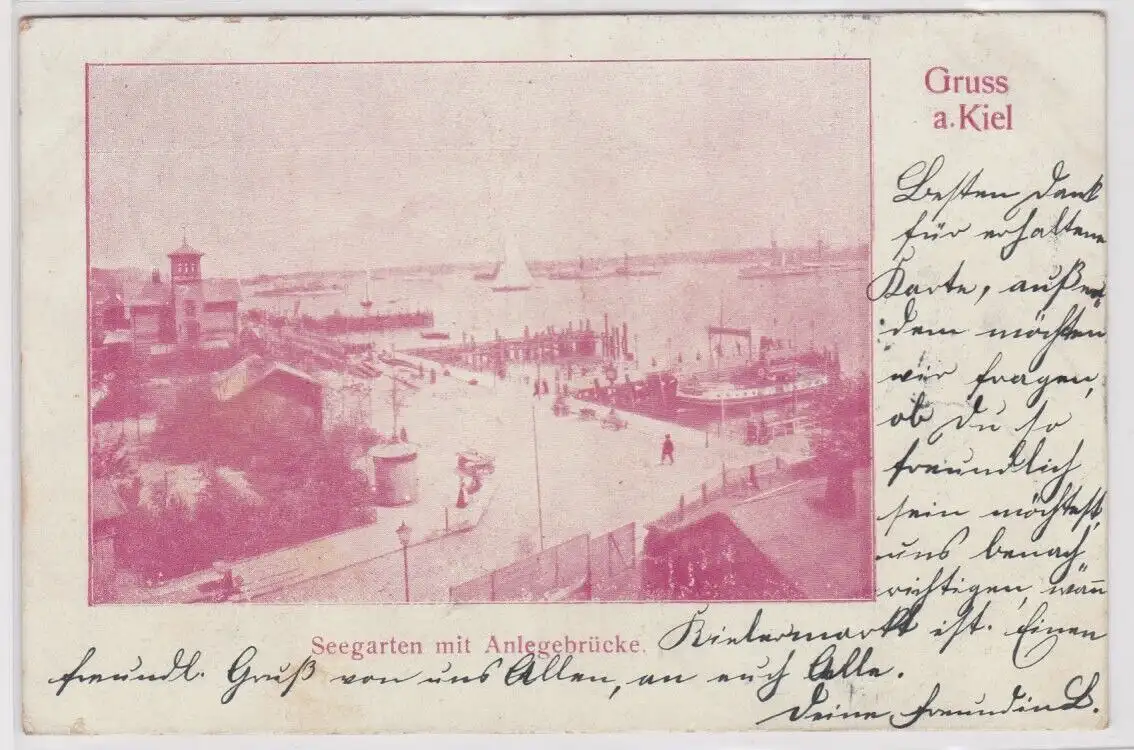 Gruss
a. Kiel
Besten Dank
für erhaltene
Karte, außer-
dem möchten
wir fragen,
ob Du so
freundlich
sein möchtest,
uns benach
richtigen, wann
Seegarten mit Anlegebrücke.
Kielermarkt ist. Einen
freundl. Gruß von uns Allen, an euch Alle.
Deine Freundin L.